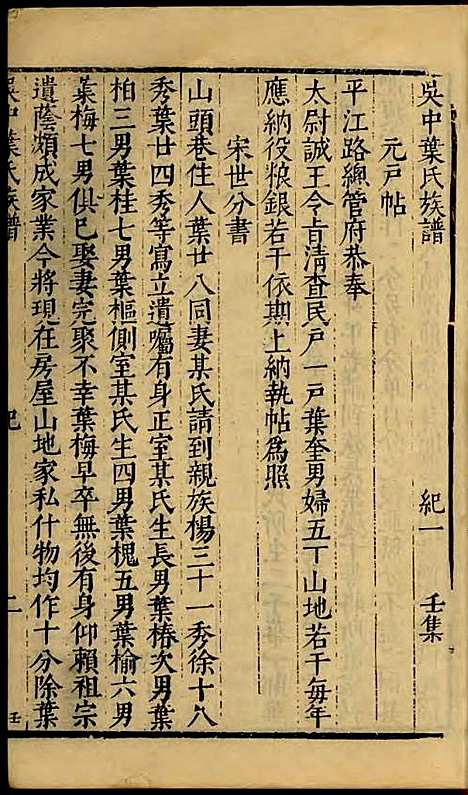 吳中葉氏族譜 紀一 壬集
元戸帖
平江路總管府恭奉
太尉誠王令㫖淸查民戸一戸葉奎男婦五丁山地若干每年
應納役粮銀若干依期上納執帖爲照
宋世分書
山頭巷住人葉廿八同妻某氏請到親族楊三十一秀徐十八
秀葉廿四秀等寫立遺囑有身正室某氏生長男葉椿次男葉
柏三男葉桂七男葉樞側室某氏生四男葉槐五男葉榆六男
葉梅七男俱已娶妻完聚不幸葉梅早卒無後有身仰賴祖宗
遺蔭頗成家業今將現在房屋山地家私什物均作十分除葉
吳中葉氏族譜 紀 二 壬